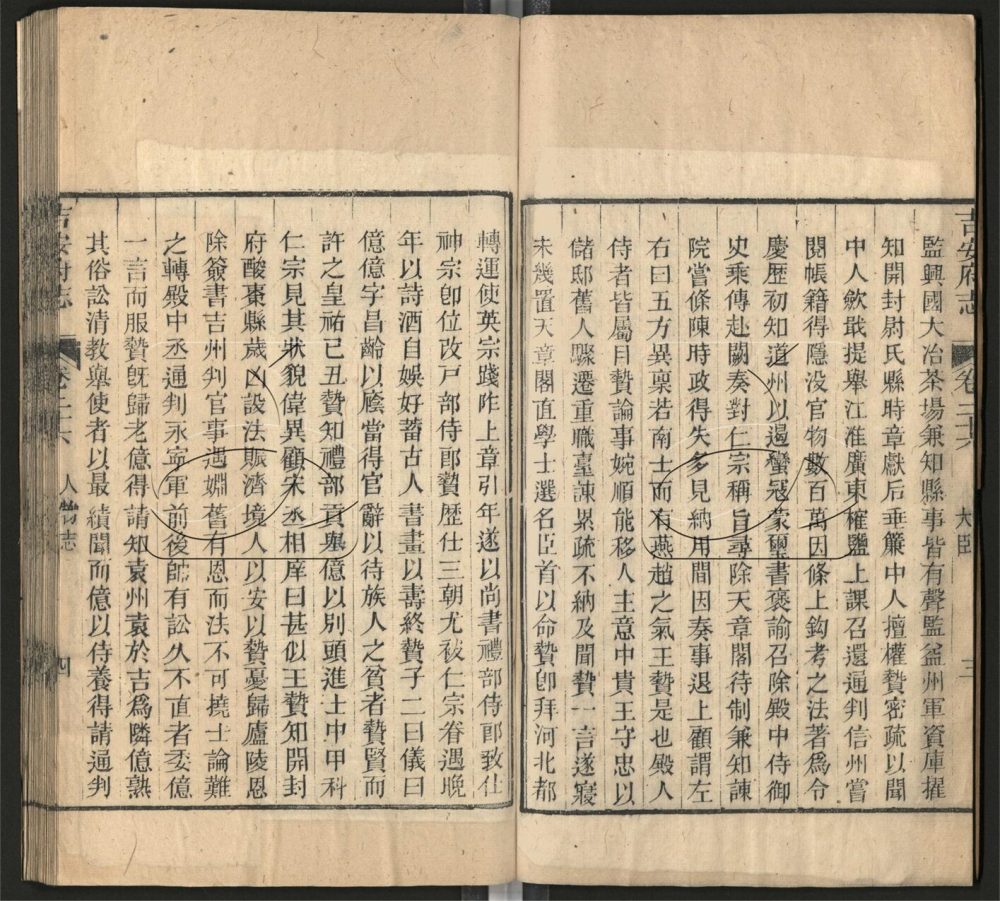 吉安府志 卷二十六 大臣 三
監興國大冶茶場兼知縣事皆有聲監益州軍資庫擢
知開封尉氏縣時章獻后垂簾中人擅權贄密疏以聞
中人歛戢提舉江淮廣東榷鹽上課召還通判信州嘗
閱帳籍得隱没官物數百萬因條上鈎考之法著爲令
慶歷初知道州以遏蠻冦蒙璽書褒諭召除殿中侍御
史乘傳赴闕奏對仁宗稱旨尋除天章閣待制兼知諫
院嘗條陳時政得失多見納用間因奏事退上顧謂左
右曰五方異稟若南士而有燕趙之氣王贄是也殿人
侍者皆屬目贄論事婉順能移人主意中貴王守忠以
儲邸舊人驟遷重職臺諫累疏不納及聞贄一言遂寢
未幾置天章閣直學士選名臣首以命贄卽拜河北都
轉運使英宗踐阼上章引年遂以尚書禮部侍郎致仕
神宗卽位改戸部侍郎贄歷仕三朝尤被仁宗眷遇晚
年以詩酒自娛好蓄古人書畫以壽終贄子二曰儀曰
億億字昌齡以廕當得官辭以待族人之貧者贄賢而
許之皇祐己丑贄知禮部貢舉億以別頭進士中甲科
仁宗見其狀貌偉異顧宋丞相庠曰甚似王贄知開封
府酸棗縣歲凶設法賑濟境人以安以贄憂歸廬陵恩
除簽書吉州判官事遇婣舊有恩而法不可撓士論難
之轉殿中丞通判永寍軍前後帥有訟久不直者委億
一言而服贄旣歸老億得請知袁州袁於吉爲隣億熟
其俗訟清教舉使者以最績聞而億以侍養得請通判
吉安府志 卷二十六 人物志 四